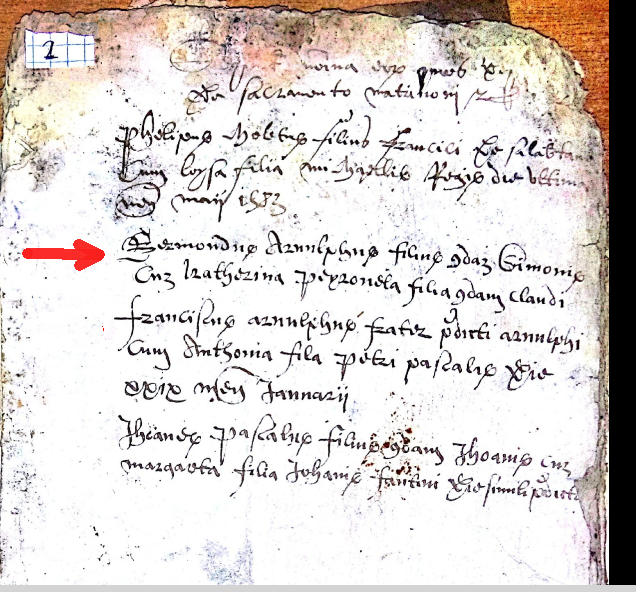 2
nomina eorum
De sacramento matrimonii
Phelipus Moletus filius francici De
Cum loysa filia mihaellis Regis die ultima
mens maij 1583
Bermondus Arnulphus filius qdam Simonis
Cum Katherina Peyronela filia qdam Claudi
franciscus arnulphus frater pdicti arnulphi
Cum Anthonia fila petri pascalis Die
xxix mens Jannarij
Jhoanes pascalus filius qdam Jhoanis cum
margareta filia Johanis fantini Die simili pdicta